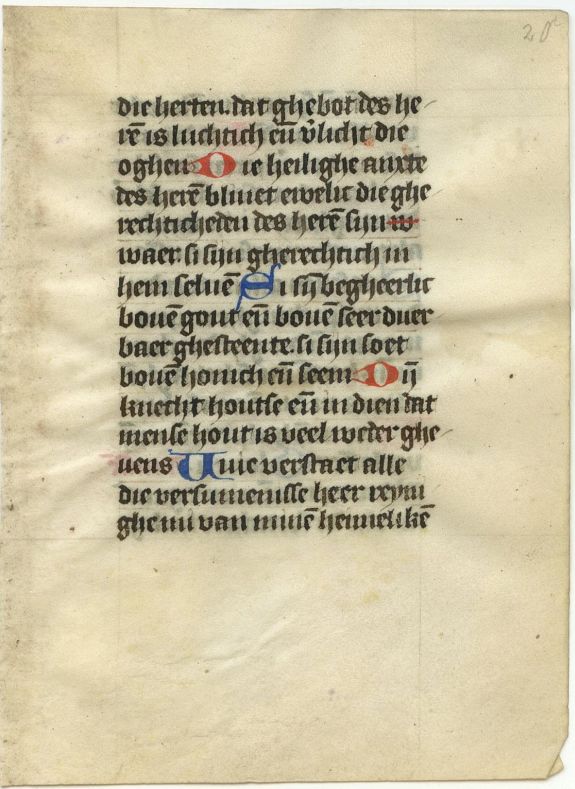 20
die herten. dat ghebot des he
rē is luchtich eñ v̄licht die
oghen Die heilighe anxte
des herē bliuet ewelic die ghe
rechticheden des herē sijn w
waer. si sijn gherechtich in
hem seluē Si sij̄ begheerlic
bouē gout eñ bouē seer duer
baer ghesteente. si sijn soet
bouē honich eñ seem Dij̄
knecht houtse eñ in dien dat
mense hout is veel weder ghe
uens Wie verstaet alle
die versumenisse heer reyni
ghe mi van minē heimelikē